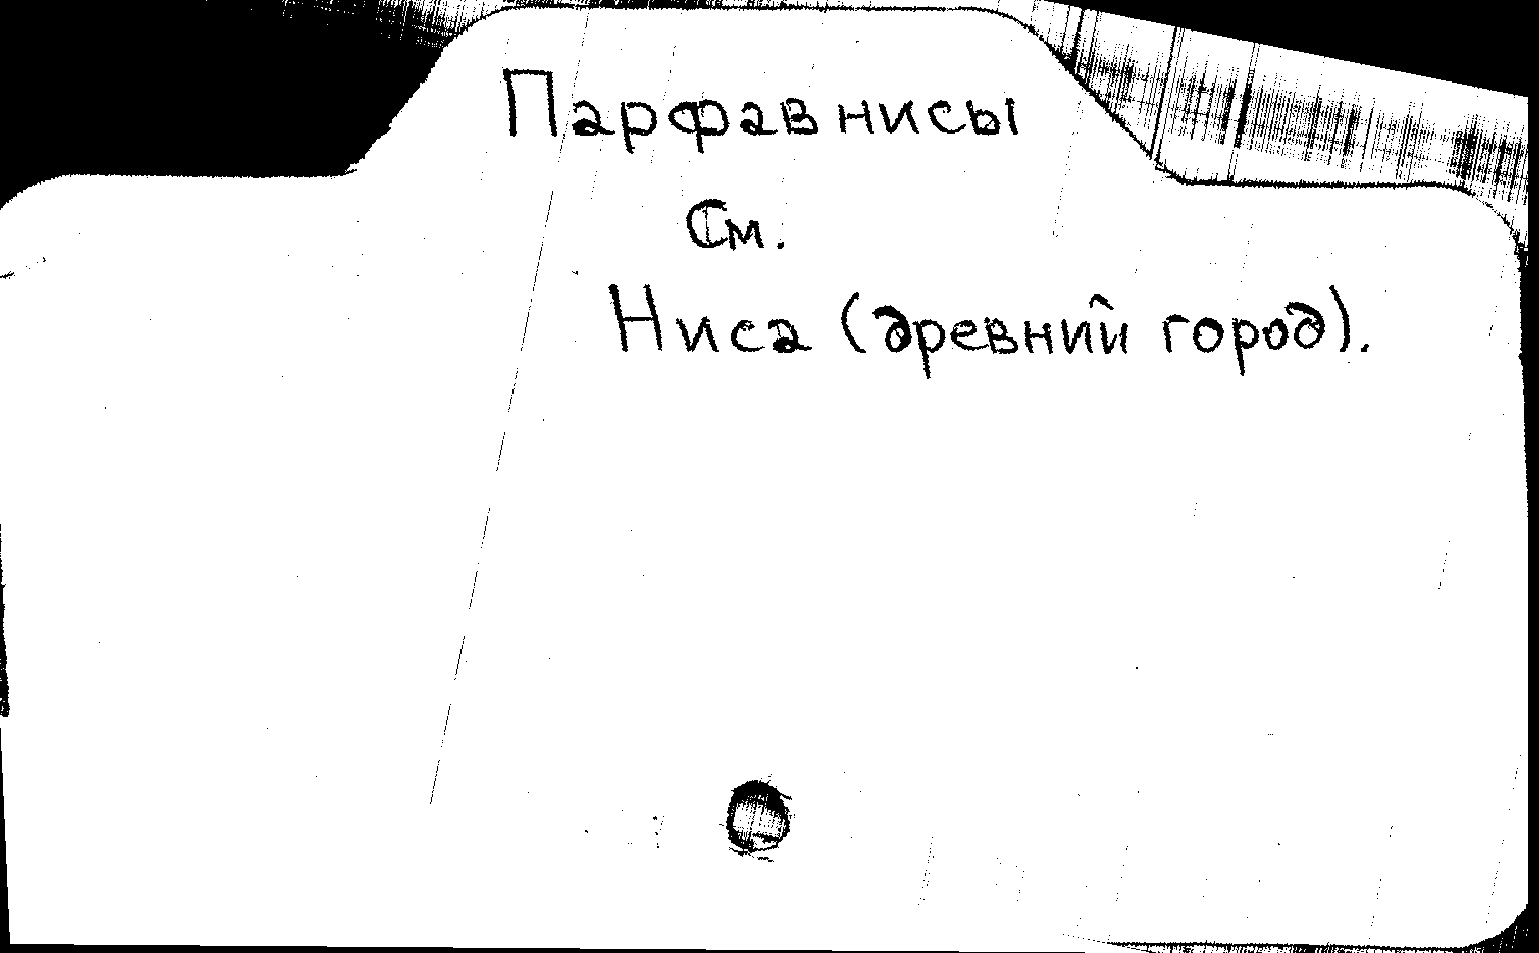 Парфавнисы
См.
Ниса (древний город).